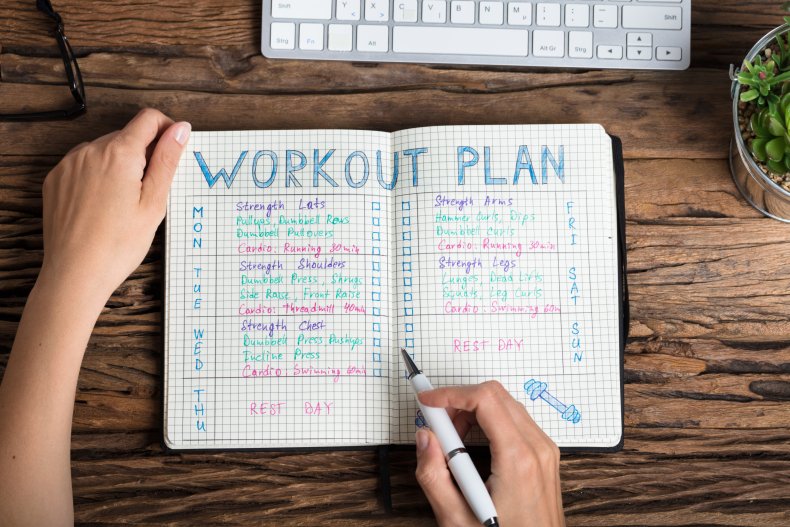 Shift Y X C V B N M Shift
Strg Alt Alt Gr Strg
WORKOUT PLAN
MON
Strength Lats
Pullups, Dumbbell Rows
Dumbbell Pullovers
Cardio: Running 30min
TUE
Strength Shoulders
Dumbbell Press, Shrugs
Side Raise, Front Raise
Cardio: Threadmill 40min
WED
Strength Chest
Dumbbell Press Pushups
Incline Press
Cardio: Swimming 60min
THU
REST DAY
FRI
Strength Arms
Hammer Curls, Dips
Dumbbell Curls
Cardio: Running 30min
SAT
Strength Legs
Lunges, Dead Lifts
Squats, Leg Curls
Cardio: Swimming 60m
SUN
REST DAY